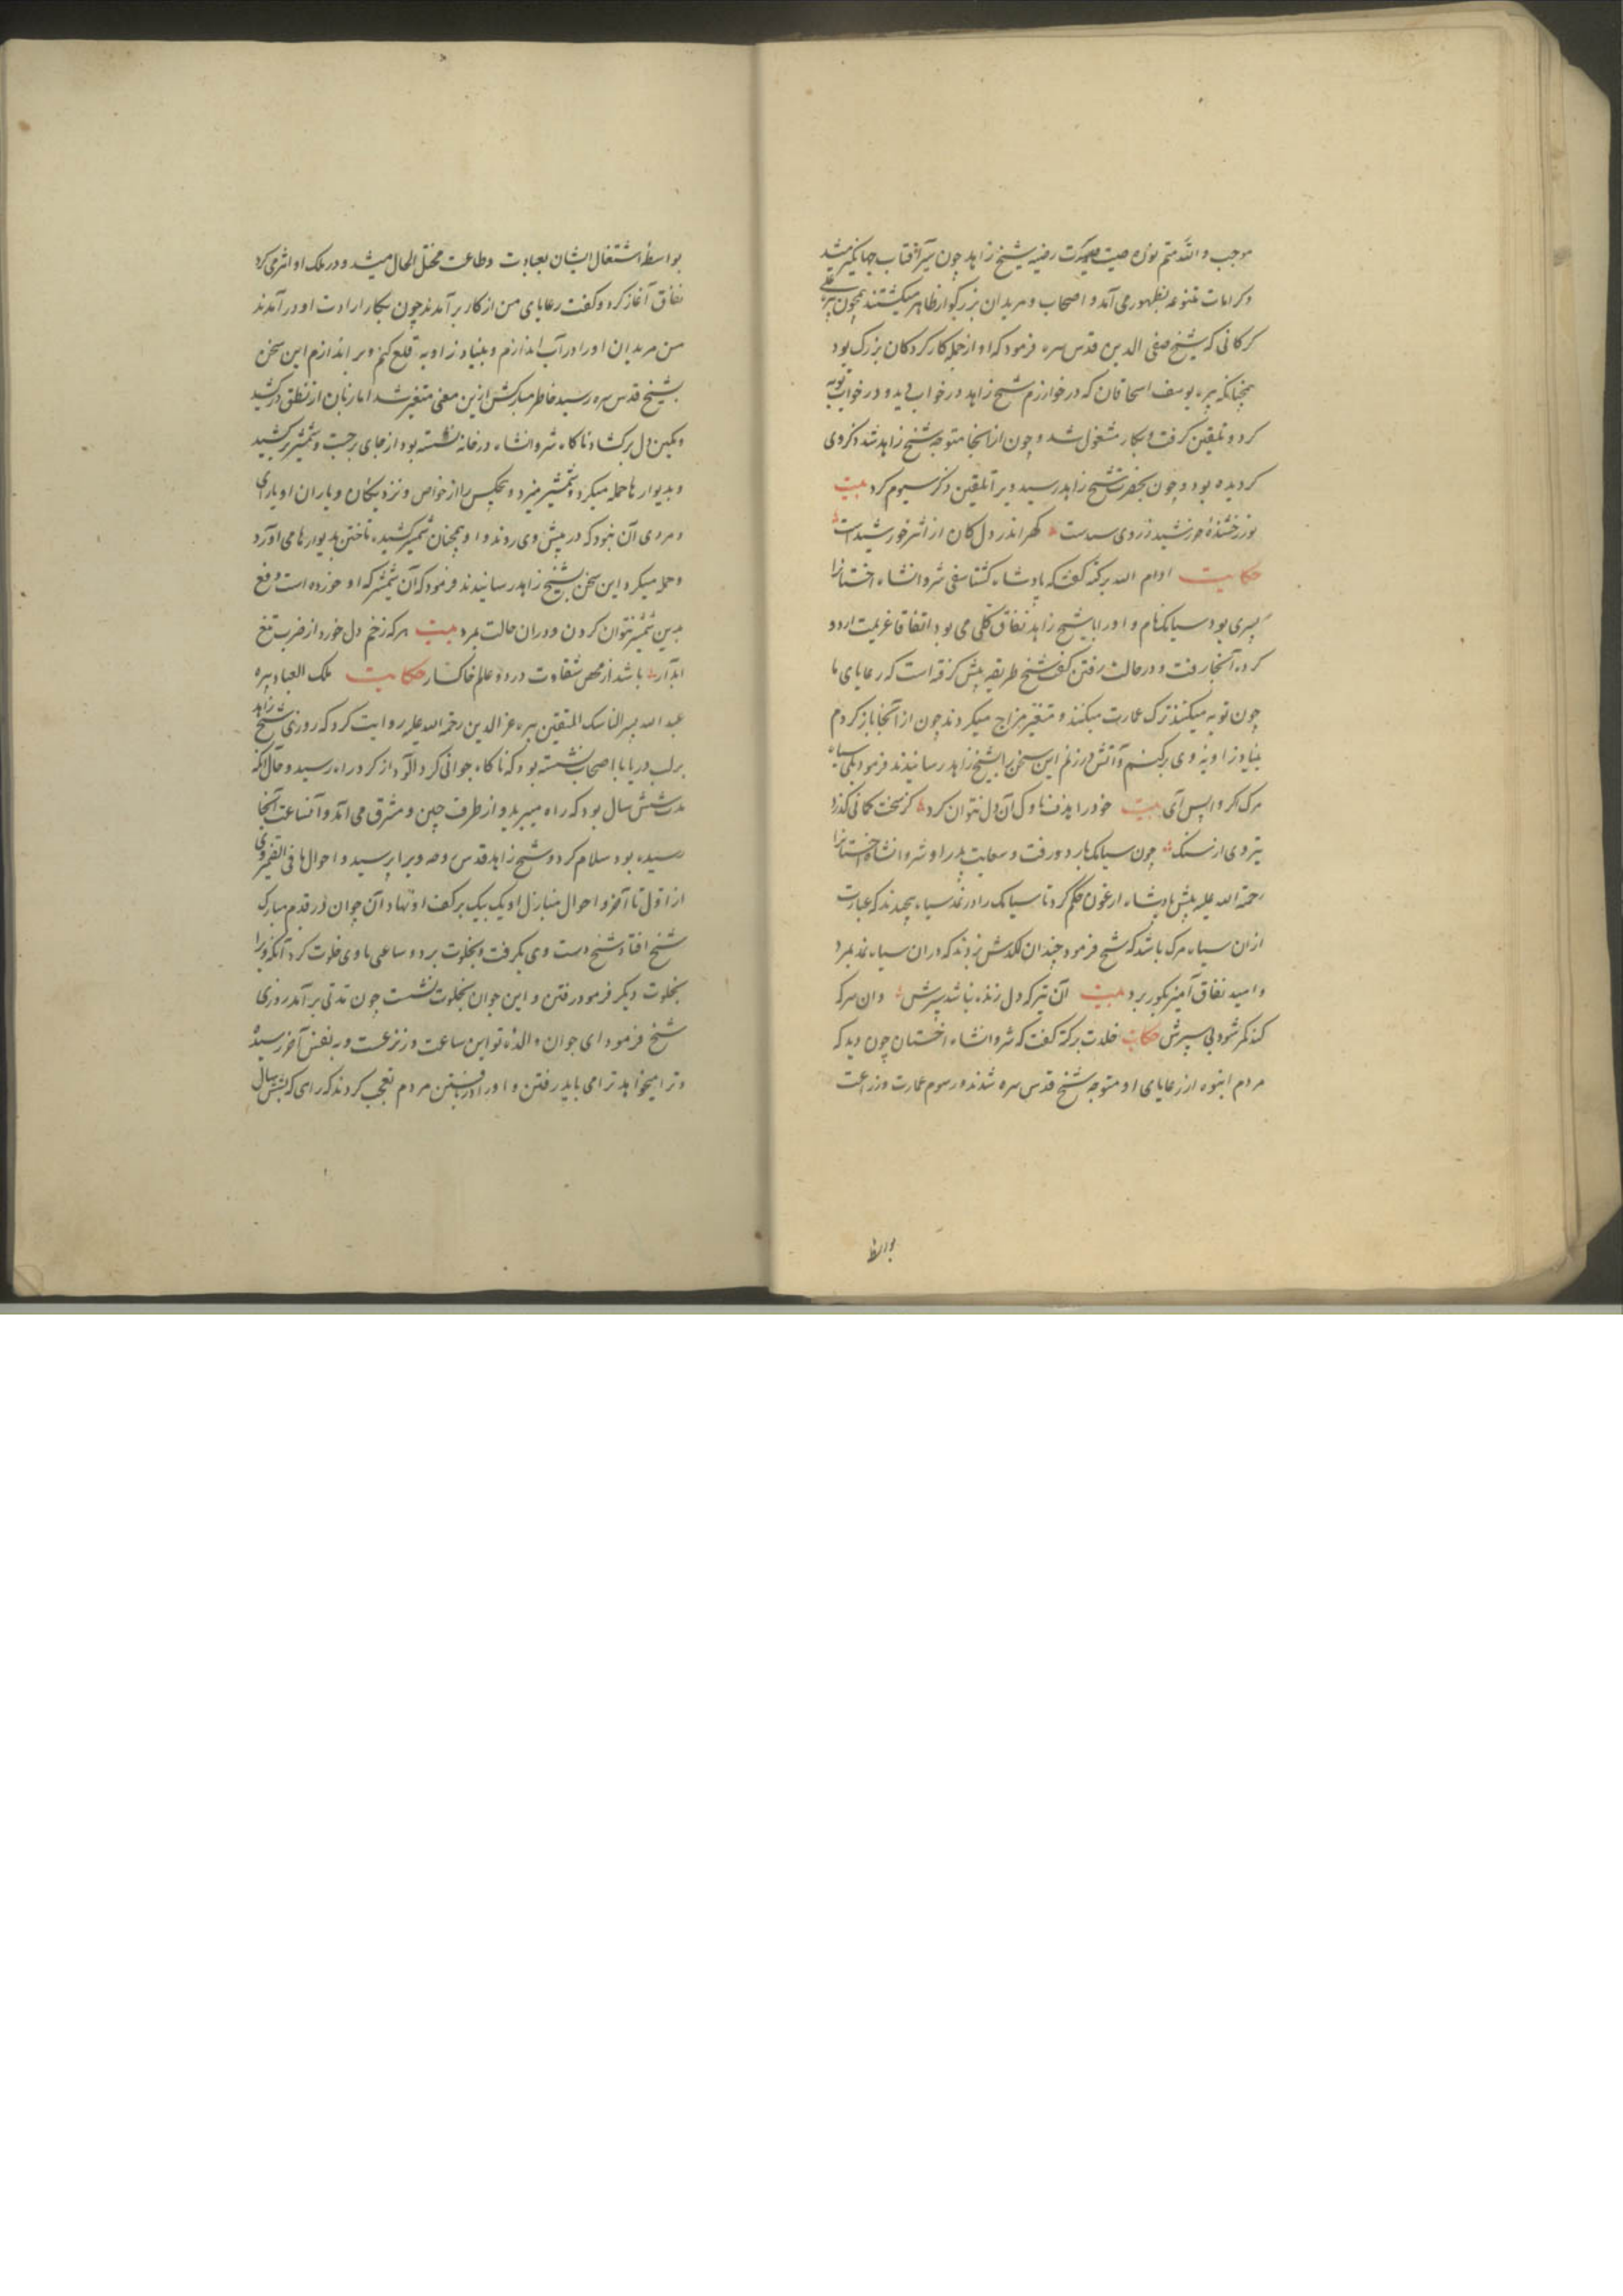 موجب والله متم نوره صیت و سیرت رضیه شیخ زاهد چون سیر آفتاب جهانگیر میشد
وکرامات متنوعه بظهور می آمد و اصحاب و مریدان بزرگوار ظاهر میگشتند همچون پیره علی
کرکانی که شیخ صفی الدین قدس سره فرمود که او از جمله کار کردکان بزرک بود
همچنانکه پیره یوسف اسحاقان که در خوارزم شیخ زاهد در خواب بدید و در خواب توبه
کرد و تلقین کرفت و بکار مشغول شد و چون از آنجا متوجه شیخ زاهد شد ذکر وی
کردیده بود و چون بحضرت شیخ زاهد رسید ویرا تلقین ذکر سیوم کرد بیت
نور رخشندهٔ خورشید ز روی است کهر اندر دل کان از اثر خورشید است
حکایت ادام الله برکته گفت که پادشاه کشتاسفی شروانشاه اخستانرا
پسری بود سیامک نام و او را با شیخ زاهد نفاق کلی می بود اتفاقا عزیمت اردو
کرده آنجا رفت و در حالت رفتن گفت شیخ طریقه پیش کرفته است که رعایای ما
چون توبه میکنند ترک عمارت میکنند و متغیر مزاج میکردند چون از آنجا باز کردم
بنیاد زاویهٔ وی برکنم و آتش درزنم این سخن با شیخ زاهد رسانیدند فرمود بلی سیاه
مرک اگر واپس آی بیت خود را هدف ناوک آن دل نتوان کرد کز سخت کمانی گذرد
تیر وی از سنک چون سیامک باردو رفت و سعایت پدر او شروانشاه اخستانرا
رحمة الله علیه پیش پادشاه ارغون حکم کرد تا سیامک را در نمد سیاه پیچیدند که عبارت
از ان سیاه مرک باشد که شیخ فرمود چندان لکدش بزدند که در ان سیاه نمد بمرد
و امید نفاق آمیز بکور برد بیت آن تیر که دل زنده نباشد سپرش وان سر که
کند کمر شود بی سپرش حکایت خلدت برکته گفت که شروانشاه اخستان چون دید که
مردم انبوه از رعایای او متوجه شیخ قدس سره شدند و رسوم عمارت و زراعت
بواسطه
بواسطهٔ اشتغال ایشان بعبادت و طاعت مختل الحال میشد و در ملک او اثر می کرد
نفاق آغاز کرد و گفت رعایای من از کار برآمدند چون بکار ارادت او درآمدند
من مریدان او را در آب اندازم و بنیاد زاویه قلع کنم و بر اندازم این سخن
بشیخ قدس سره رسید خاطر مبارکش ازین معنی متغیر شد اما زبان از نطق درکشید
وکمین دل برکشاد ناکاه شروانشاه در خانه نشسته بود از جای برجست و شمشیر برکشید
و بدیوارها حمله میکرد و شمشیر میزد و هیچکس را از خواص و نزدیکان و یاران او یارای
و مردی آن نبود که در پیش وی روند و او همچنان شمشیر کشیده تاختن بدیوارها می آورد
و حمله میکرد این سخن بشیخ زاهد رسانیدند فرمود که آن شمشیر که او خورده است دفع
بدین شمشیر نتوان کردن و در ان حالت بمرد بیت هرکه زخم دل خورد از ضرب تیغ
آبدار باشد از محض شقاوت در دو عالم خاکسار حکایت ملک العباد پیره
عبد الله پسر الناسک المتقین پیره عز الدین رحمة الله علیه روایت کرد که روزی شیخ زاهد
بر لب دریا با اصحاب نشسته بود که ناکاه جوانی کرد آلود از کرد راه رسید و حال آنکه
مدت شش سال بود که راه میبرید و از طرف چین و مشرق می آمد و آنساعت آنجا
رسیده بود سلام کرد و شیخ زاهد قدس روحه ویرا بپرسید و احوال ما فی الضمیر وی
از اول تا آخر و احوال منازل او یک بیک بر کف او نهاد آن جوان در قدم مبارک
شیخ افتاد شیخ دست وی بگرفت و بخلوت برد و ساعتی با وی خلوت کرد آنکه ویرا
بخلوت دیگر فرمود رفتن و این جوان بخلوت نشست چون مدتی برآمد روزی
شیخ فرمود ای جوان والدهٔ تو این ساعت در نزعست و به نفس آخر رسیده
و ترا میخواهد ترا می باید رفتن و او را دریافتن مردم تعجب کردند که راهی که بشش سال